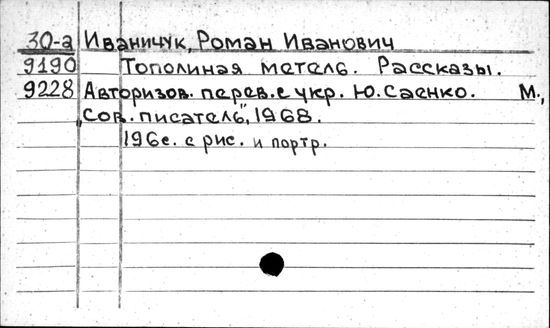 30-а Иваничук, Роман Иванович
9190 Тополиная метель. Рассказы.
9228 Авторизов. перев. с укр. Ю. Саенко. М.,
„Сов. писатель", 1968.
196с. с рис. и портр.